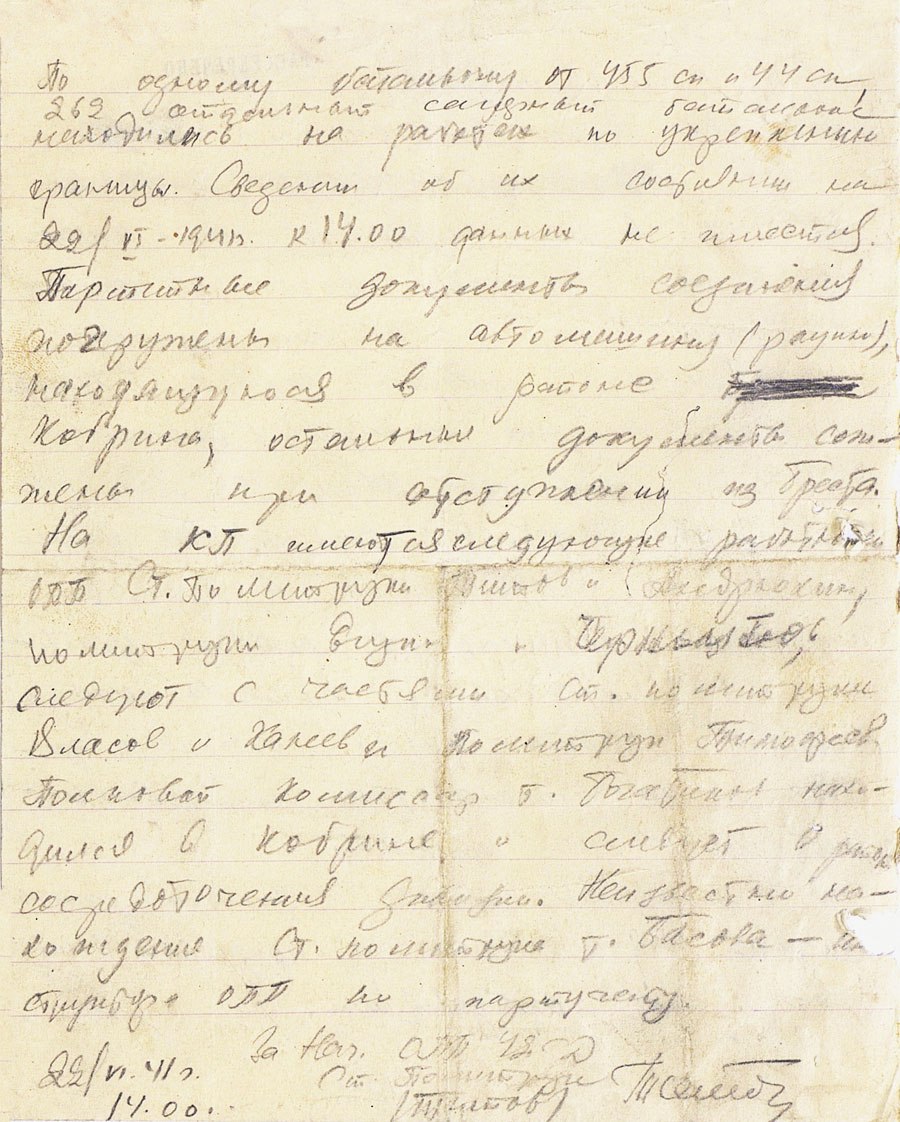 По одному батальону от 455 сп и 44 сп,
262 отдельный саперный батальон
находились на работах по укреплению
границы. Сведений об их состоянии на
22/VI-1941г. к 14.00 данных не имеется.
Партийные документы соединения
погружены на автомашину (рацию),
находящуюся в районе
Кобрина, остальные документы сож-
жены при отступлении из Бреста.
На КП имеются следующие работники
ОПП Ст. Политруки и
политруки и
следуют с частями ст. политруки
Власов и и политрук Тимофеев
Полковой комиссар т. нахо-
дился в Кобрине и следует в район
сосредоточения дивизии. Неизвестно на-
хождение Ст. политрука т. Басова – ин
структора ОПП по партучету.
За Нач. ОПП 42 СД
22/VI 41 г. Ст. Политрук
14.00.